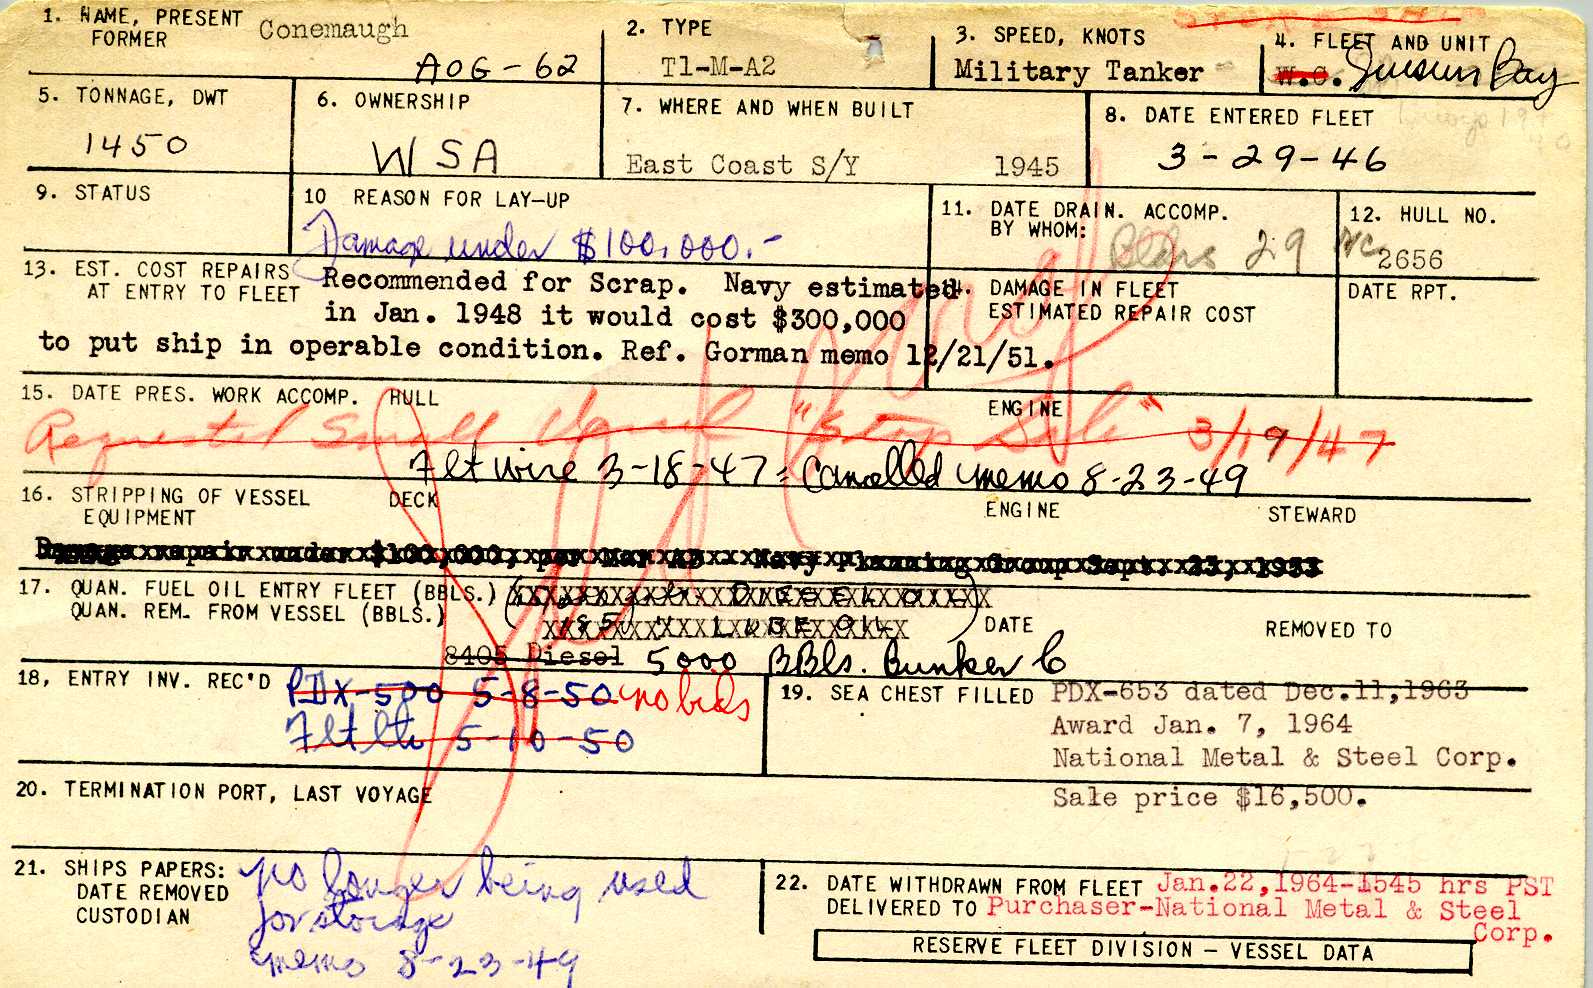 1. NAME, PRESENT Conemaugh
FORMER AOG-62
2. TYPE
T1-M-A2
3. SPEED, KNOTS
Military Tanker
4. FLEET AND UNIT
W.C. Suisun Bay
5. TONNAGE, DWT
1450
6. OWNERSHIP
WSA
7. WHERE AND WHEN BUILT
East Coast S/Y 1945
8. DATE ENTERED FLEET
3-29-46
9. STATUS
10 REASON FOR LAY-UP
Damage under $100,000.-
11. DATE DRAIN. ACCOMP.
BY WHOM: 29
12. HULL NO.
MC 2656
13. EST. COST REPAIRS
AT ENTRY TO FLEET
Recommended for Scrap. Navy estimated
in Jan. 1948 it would cost $300,000
to put ship in operable condition. Ref. Gorman memo 12/21/51.
14. DAMAGE IN FLEET
ESTIMATED REPAIR COST
DATE RPT.
15. DATE PRES. WORK ACCOMP. HULL ENGINE
Requested Small Vessel "Stop Sale" 3/19/47
Flt wire 3-18-47 = Cancelled memo 8-23-49
16. STRIPPING OF VESSEL DECK ENGINE STEWARD
EQUIPMENT
Damage repair under $100,000, per Mar AD - Navy Planning Group Sept. 23, 1953
17. QUAN. FUEL OIL ENTRY FLEET (BBLS.) DIESEL OIL
QUAN. REM. FROM VESSEL (BBLS.) 185 " LUBE OIL DATE REMOVED TO
8405 Diesel 5000 BBls. Bunker C
18, ENTRY INV. REC'D PDX-500 5-8-50 no bids
Flt ltr 5-10-50
19. SEA CHEST FILLED PDX-653 dated Dec.11,1963
Award Jan. 7, 1964
National Metal & Steel Corp.
Sale price $16,500.
20. TERMINATION PORT, LAST VOYAGE
21. SHIPS PAPERS:
DATE REMOVED
CUSTODIAN
no longer being used
for storage
memo 8-23-49
22. DATE WITHDRAWN FROM FLEET Jan.22,1964-1545 hrs PST
DELIVERED TO Purchaser-National Metal & Steel
Corp.
RESERVE FLEET DIVISION – VESSEL DATA